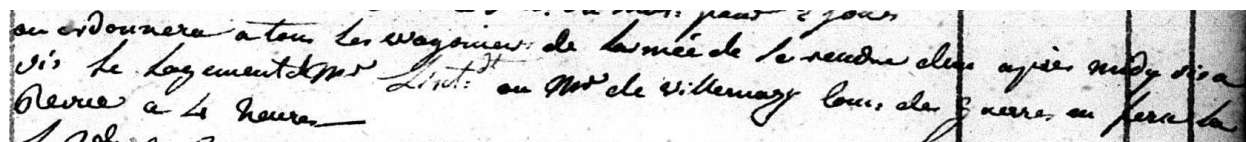 pour 2 jours
on ordonnera a tous les wagonniers de larmée de se rendre demain apres midy vis a
vis le logement de Mr Lint.dt ou Mr de villemanzy Com.re des guerres en fera la
Revue a 4 heures